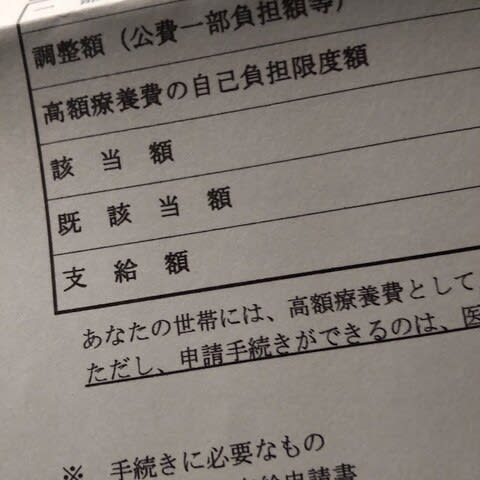 調整額（公費一部負担額等）
高額療養費の自己負担限度額
該当額
既該当額
支給額
あなたの世帯には、高額療養費として
ただし、申請手続きができるのは、医
※ 手続きに必要なもの
給申請書